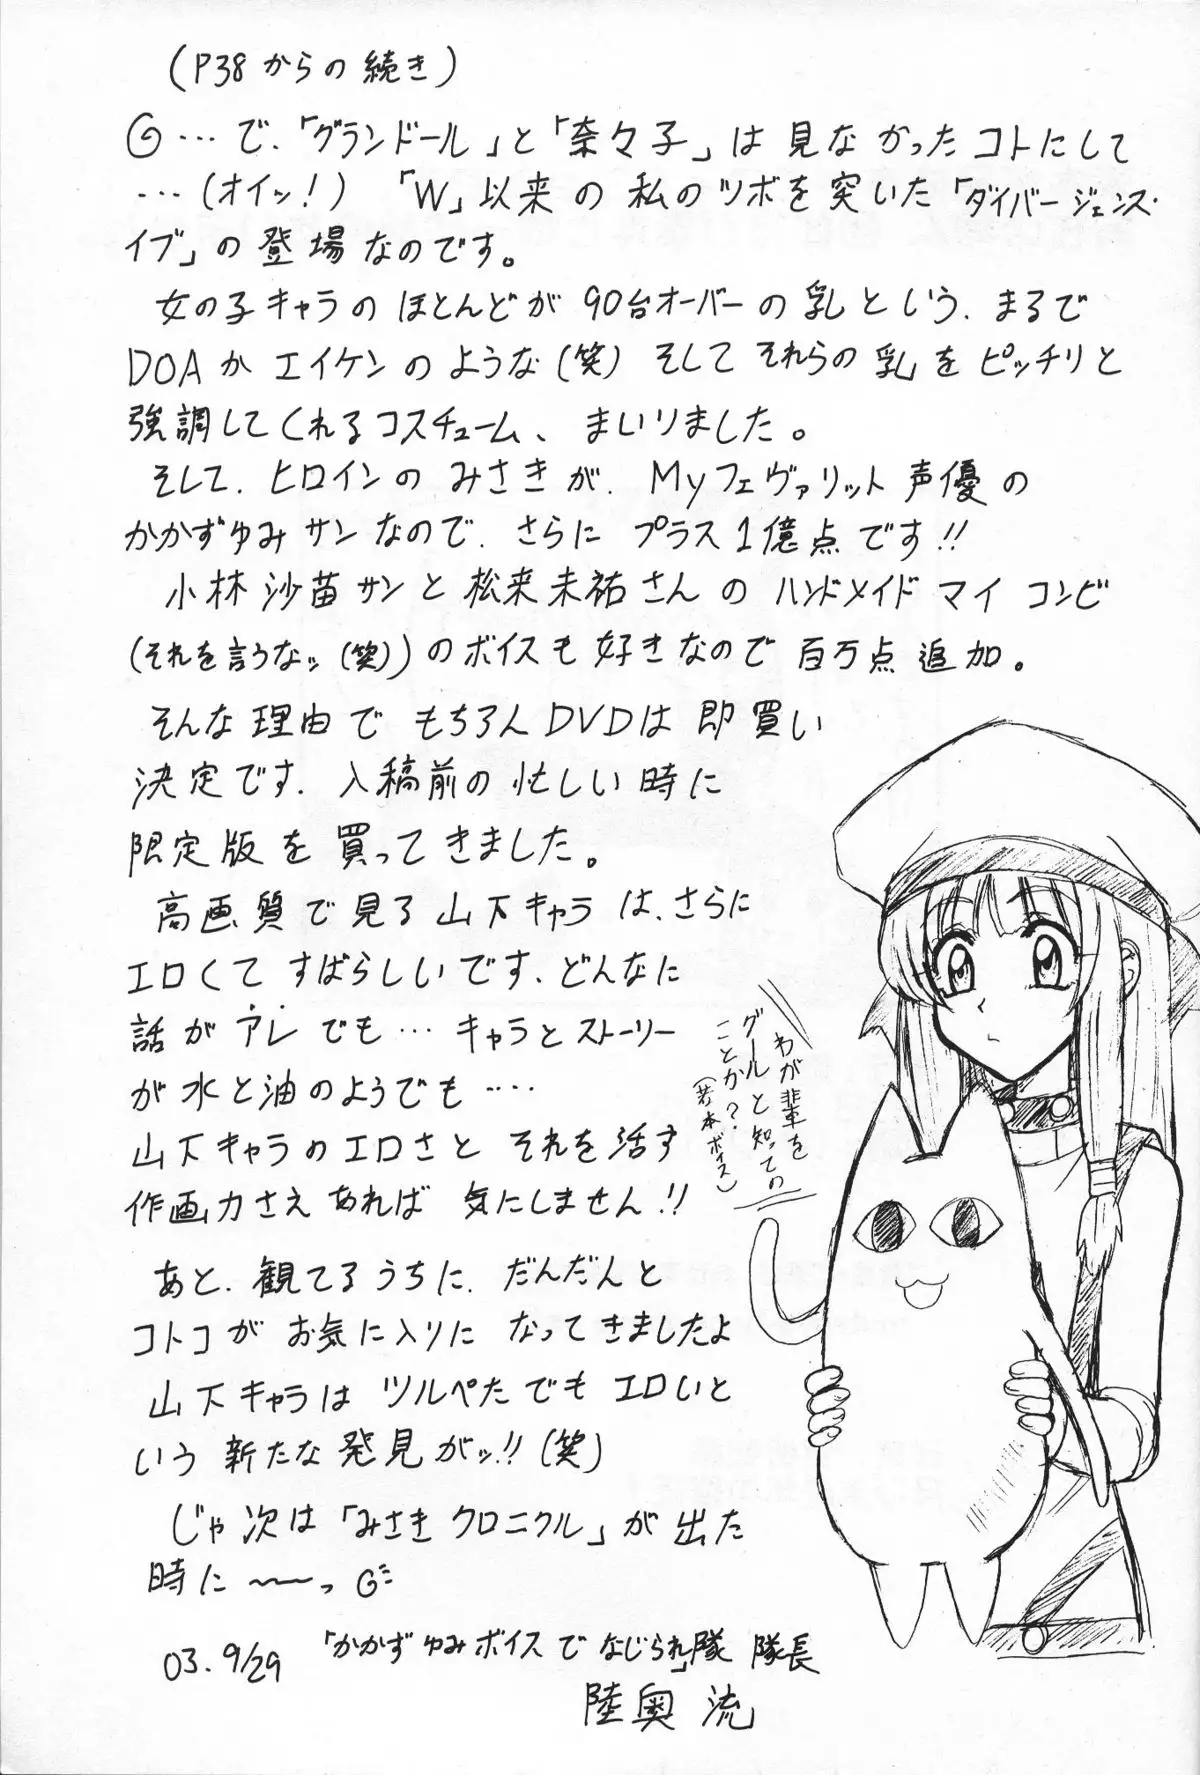 (P38からの続き)
◎…で、「グランドール」と「奈々子」は見なかったコトにして
…(オイッ!) 「W」以来の私のツボを突いた「ダイバージェンス・
イブ」の登場なのです。
女の子キャラのほとんどが90台オーバーの乳という、まるで
DOAかエイケンのような(笑)そしてそれらの乳をピッチリと
強調してくれるコスチューム、まいりました。
そして、ヒロインのみさきが、Myフェヴァリット声優の
かかずゆみサンなので、さらにプラス1億点です!!
小林沙苗サンと松来未祐さんのハンドメイドマイコンビ
(それを言うなッ(笑))のボイスも好きなので百万点追加。
そんな理由でもちろんDVDは即買い
決定です、入稿前の忙しい時に
限定版を買ってきました。
高画質で見る山下キャラは、さらに
エロくてすばらしいです、どんなに
話がアレでも…キャラとストーリー
が水と油のようでも…
山下キャラのエロさとそれを活す
作画力さえあれば気にしません!!
あと、観てるうちに、だんだんと
コトコがお気に入りになってきましたよ
山下キャラはツルペたでもエロいと
いう新たな発見がッ!!(笑)
じゃ次は「みさきクロニクル」が出た
時に〜〜っ
03.9/29 「かかずゆみボイスでなじられ隊」隊長
陸奥流
わが輩を
グールと知っての
ことか?
(若本ボイス)